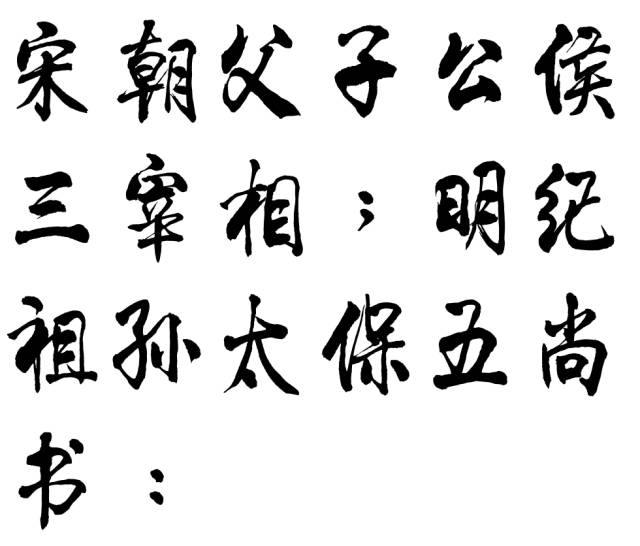 宋朝父子公侯
三宰相；明纪
祖孙太保五尚
书：